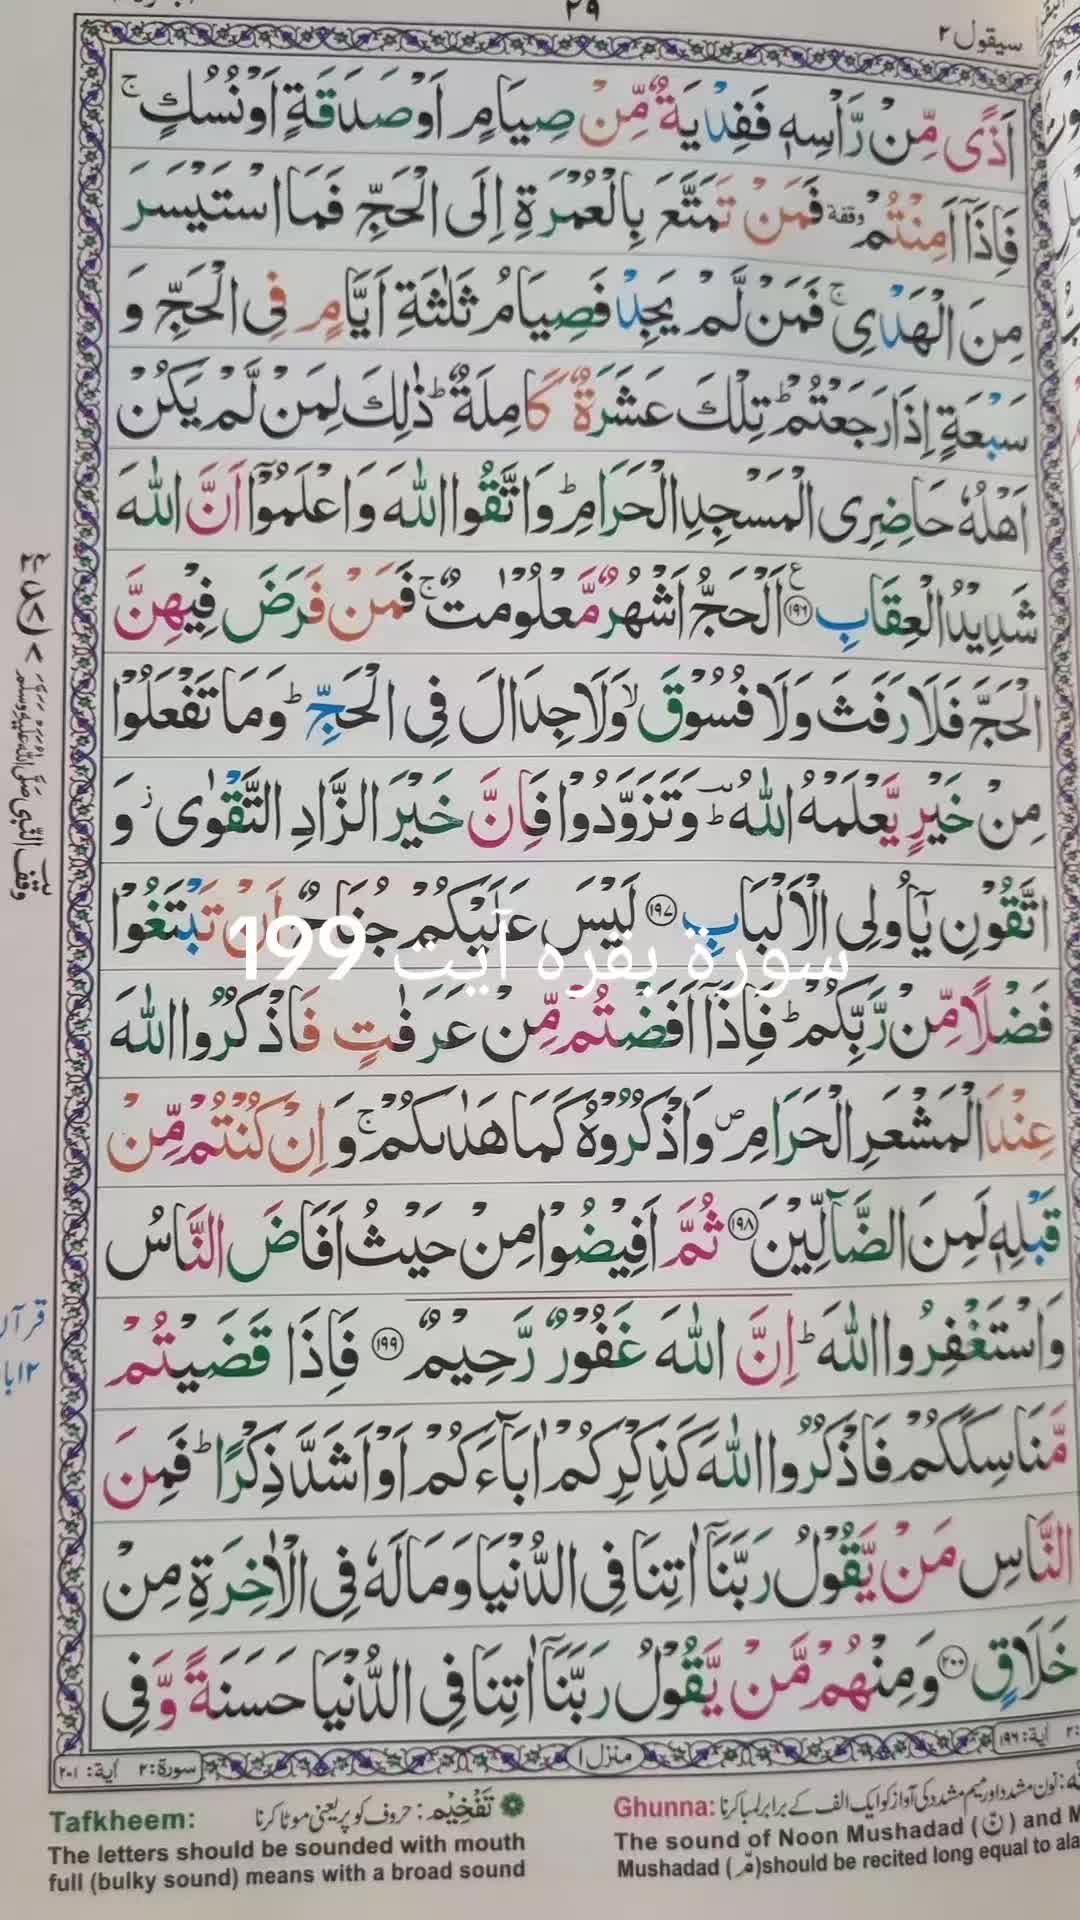 ۲۹
سيقول ۲
اَذًى مِّنْ رَّاْسِهٖ فَفِدْيَةٌ مِّنْ صِيَامٍ اَوْ صَدَقَةٍ اَوْ نُسُكٍ ۚ
فَاِذَآ اَمِنْتُمْ ۥ وقفة فَمَنْ تَمَتَّعَ بِالْعُمْرَةِ اِلَى الْحَجِّ فَمَا اسْتَيْسَرَ
مِنَ الْهَدْيِ ۚ فَمَنْ لَّمْ يَجِدْ فَصِيَامُ ثَلٰثَةِ اَيَّامٍ فِي الْحَجِّ وَ
سَبْعَةٍ اِذَا رَجَعْتُمْ ؕ تِلْكَ عَشَرَةٌ كَامِلَةٌ ؕ ذٰلِكَ لِمَنْ لَّمْ يَكُنْ
اَهْلُهٗ حَاضِرِى الْمَسْجِدِ الْحَرَامِ ؕ وَاتَّقُوا اللّٰهَ وَاعْلَمُوْٓا اَنَّ اللّٰهَ
شَدِيْدُ الْعِقَابِ ۱۹۶ ع اَلْحَجُّ اَشْهُرٌ مَّعْلُوْمٰتٌ ۚ فَمَنْ فَرَضَ فِيْهِنَّ
الْحَجَّ فَلَا رَفَثَ وَلَا فُسُوْقَ ۙ وَلَا جِدَالَ فِي الْحَجِّ ؕ وَمَا تَفْعَلُوْا
مِنْ خَيْرٍ يَّعْلَمْهُ اللّٰهُ ؕ وَتَزَوَّدُوْا فَاِنَّ خَيْرَ الزَّادِ التَّقْوٰى ۫ وَ
اتَّقُوْنِ يٰٓاُولِى الْاَلْبَابِ ۱۹۷ لَيْسَ عَلَيْكُمْ جُنَاحٌ اَنْ تَبْتَغُوْا
سورة بقره آيت 199
فَضْلًا مِّنْ رَّبِّكُمْ ؕ فَاِذَآ اَفَضْتُمْ مِّنْ عَرَفٰتٍ فَاذْكُرُوا اللّٰهَ
عِنْدَ الْمَشْعَرِ الْحَرَامِ ۪ وَاذْكُرُوْهُ كَمَا هَدٰىكُمْ ۚ وَاِنْ كُنْتُمْ مِّنْ
قَبْلِهٖ لَمِنَ الضَّآلِّيْنَ ۱۹۸ ثُمَّ اَفِيْضُوْا مِنْ حَيْثُ اَفَاضَ النَّاسُ
وَاسْتَغْفِرُوا اللّٰهَ ؕ اِنَّ اللّٰهَ غَفُوْرٌ رَّحِيْمٌ ۱۹۹ فَاِذَا قَضَيْتُمْ
مَّنَاسِكَكُمْ فَاذْكُرُوا اللّٰهَ كَذِكْرِكُمْ اٰبَآءَكُمْ اَوْ اَشَدَّ ذِكْرًا ؕ فَمِنَ
النَّاسِ مَنْ يَّقُوْلُ رَبَّنَآ اٰتِنَا فِي الدُّنْيَا وَمَا لَهٗ فِي الْاٰخِرَةِ مِنْ
خَلَاقٍ ۲۰۰ وَمِنْهُمْ مَّنْ يَّقُوْلُ رَبَّنَآ اٰتِنَا فِي الدُّنْيَا حَسَنَةً وَّفِي
وقف النبي صلى الله عليه وسلم
منزل ۱
اٰية: ۱۹۶
سورة: ۲ اٰية: ۲۰۱
Tafkheem: تَفْخِيْم: حروف کو پُر یعنی موٹا کرنا
The letters should be sounded with mouth
full (bulky sound) means with a broad sound
Ghunna: نون مشدد اور میم مشدد کی آواز کو ایک الف کے برابر لمبا کرنا
The sound of Noon Mushadad (نّ) and
Mushadad (مّ) should be recited long equal to